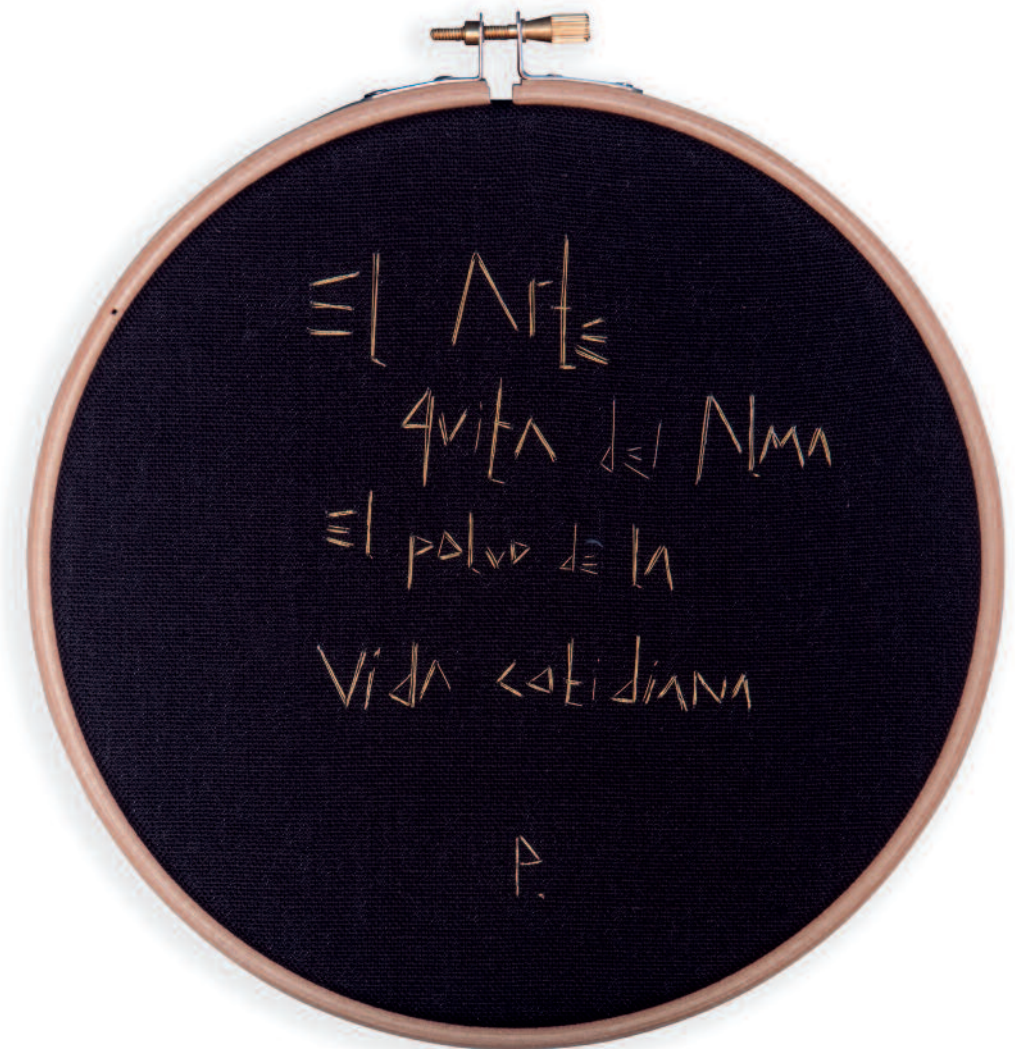 El Arte
quita del Alma
El polvo de la
Vida cotidiana
P.